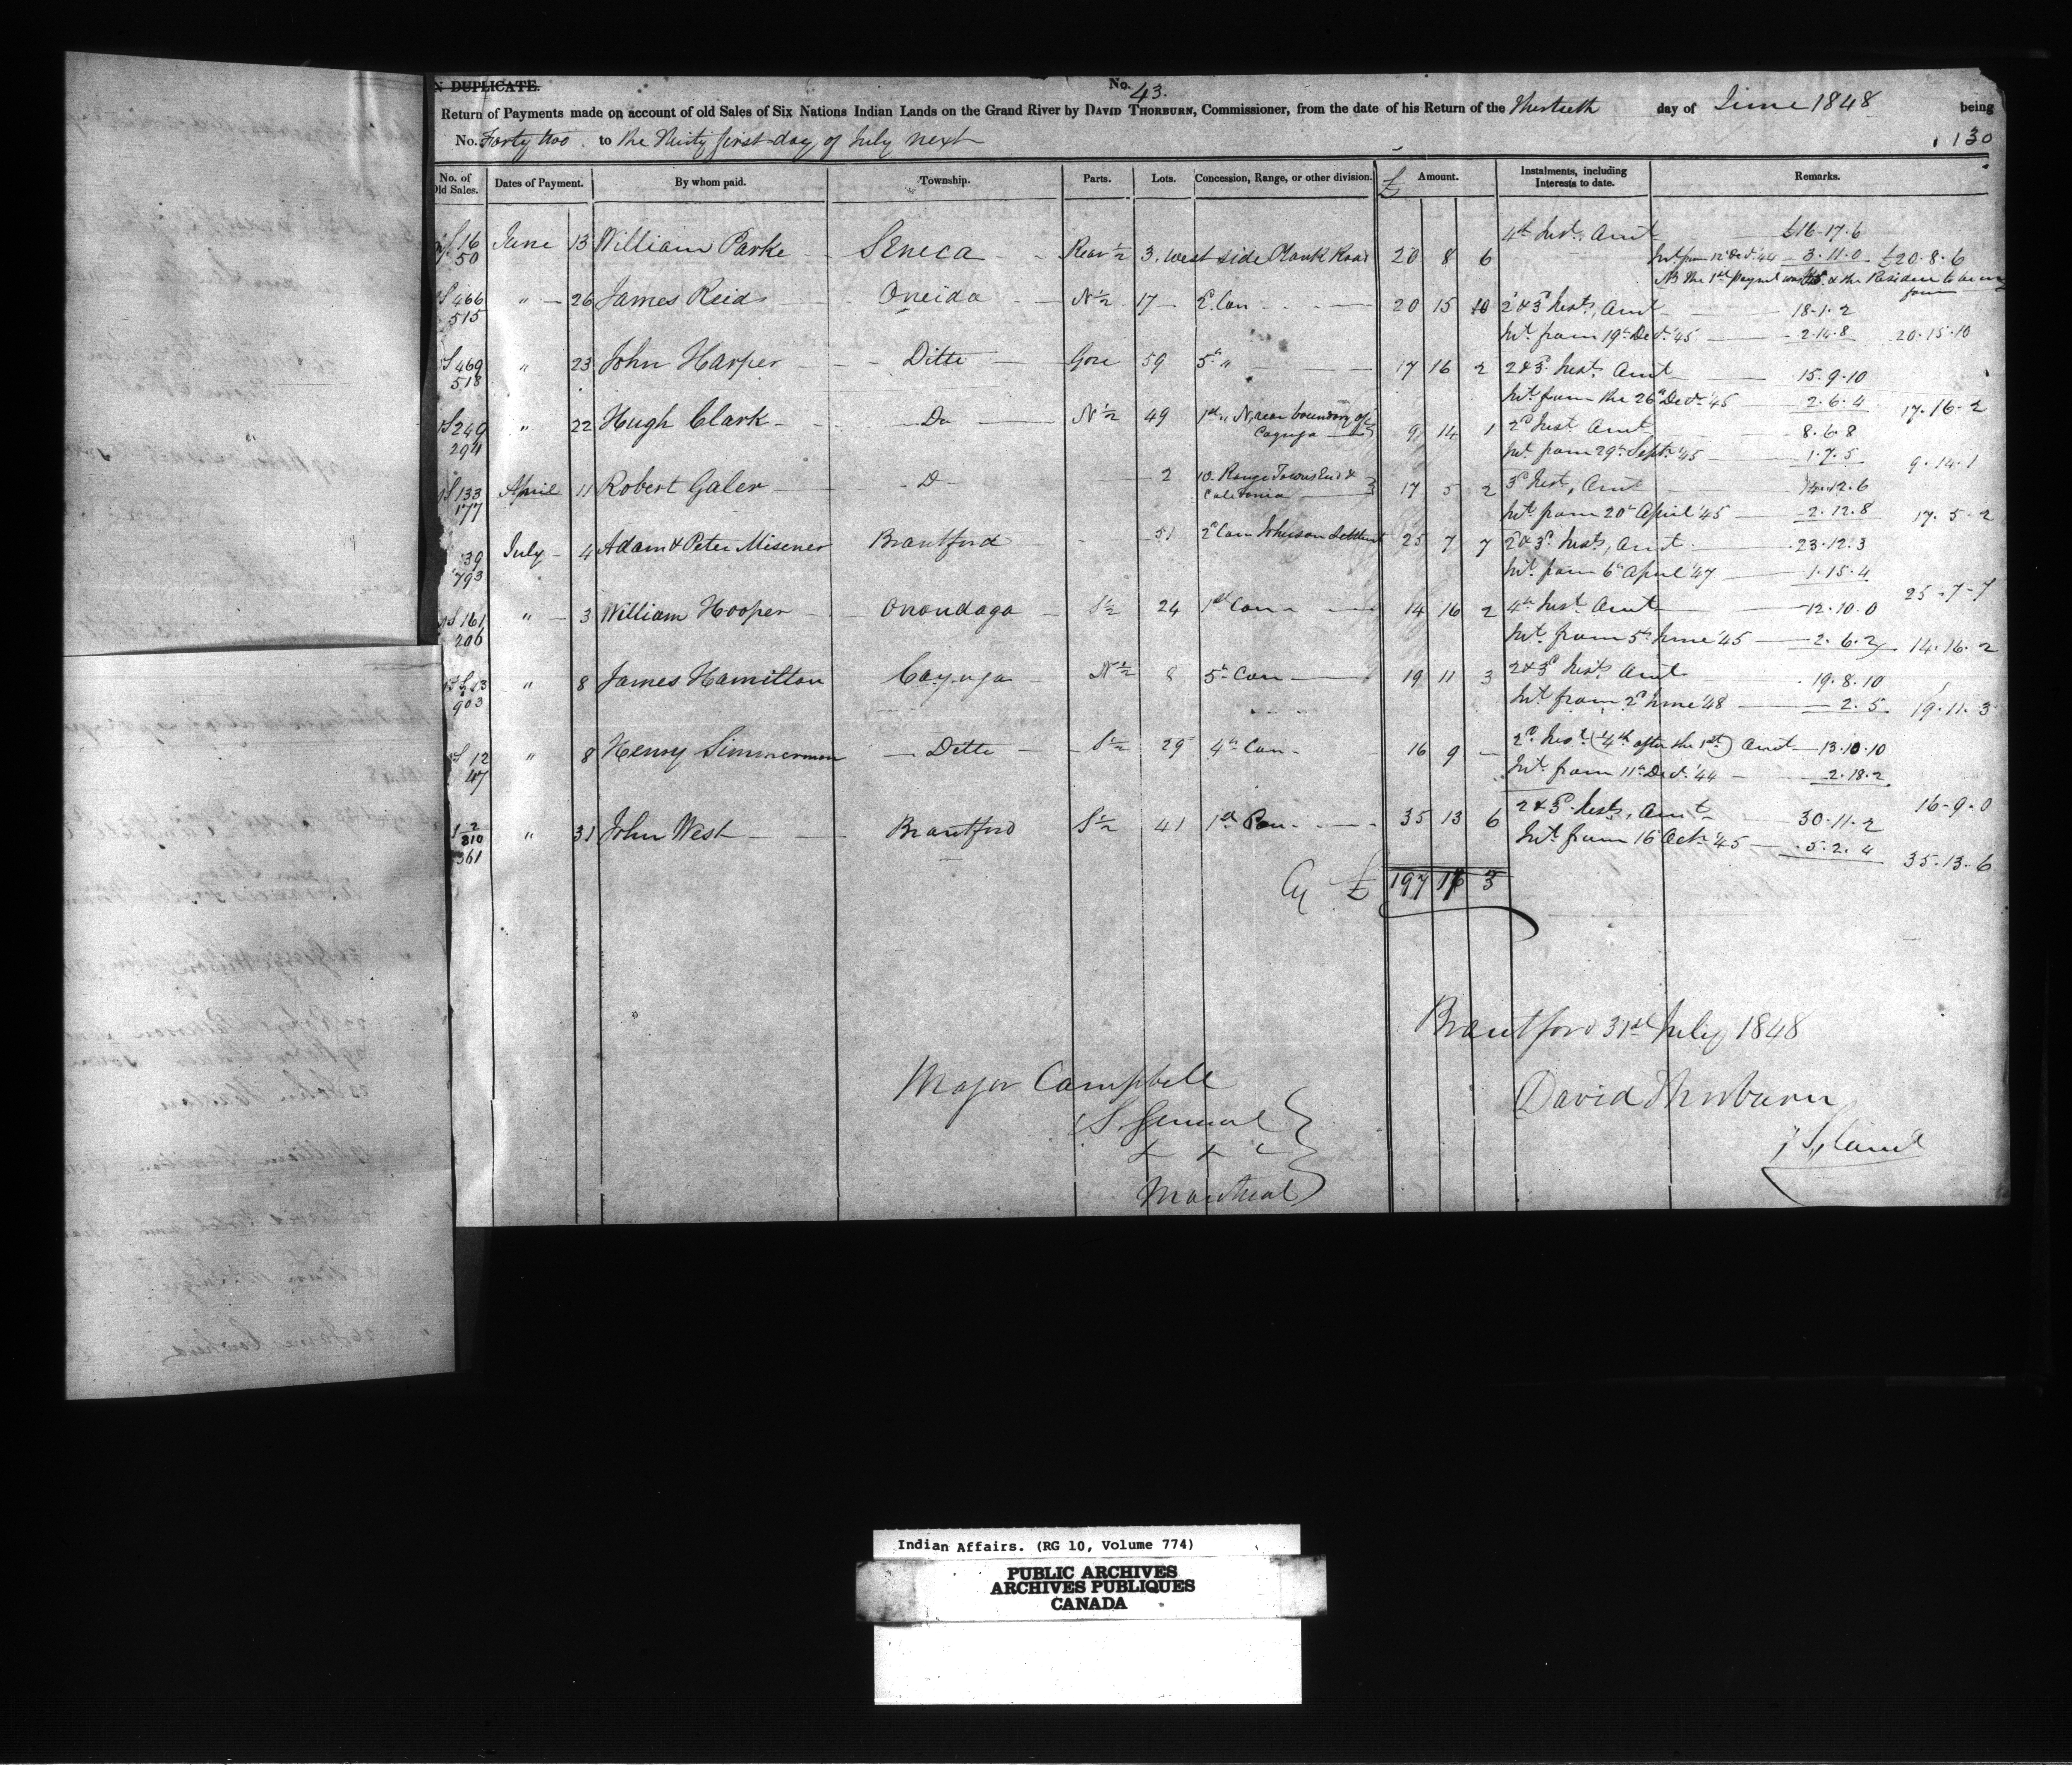 N DUPLICATE.
No. 43.
Return of Payments made on account of old Sales of Six Nations Indian Lands on the Grand River by DAVID THORBURN, Commissioner, from the date of his Return of the Thirtieth day of June 1848 being
No. Forty two to the Thirty first day of July next
130
No. of Old Sales. Dates of Payment. By whom paid. Township. Parts. Lots. Concession, Range, or other division. £ Amount. Instalments, including Interests to date. Remarks.
16 June 13 William Parke Seneca Rear ½ 3. west side Plank Road 20 8 6 4th Inst. Amt £16-17-6
50 Int from 12 Decr. '44 3.11.0 £20.8.6
NB the 1st Payment was
466 " 26 James Reid Oneida N ½ 17 2 Con 20 15 10 2d & 3d Insts, Amt 18-1-2
515 Int. from 19th Decr. '45 2.14.8 20.15.10
469 " 23 John Harper Ditto Gore 59 5th " 17 16 2 2 & 3d Insts. Amt 15.9.10
518 Int. from the 26th Decr. '45 2.6.4 17.16.2
249 " 22 Hugh Clark Do N ½ 49 1st " N, rear boundary of Cayuga 9 14 1 2d Inst. Amt 8.6.8
294 Int. from 29th Septr. '45 1.7.5 9.14.1
133 April 11 Robert Galer D 2 10. Range Townsend & Caledonia 17 5 2 3d Inst, Amt 14.12.6
177 Int. from 20th April '45 2.12.8 17.5.2
39 July 4 Adam & Peter Misener Brantford 51 2d Con Johnson Settlemt 25 7 7 2d & 3d Insts, Amt 23.12.3
793 Int. from 6th April '47 1.15.4 25.7.7
161 " 3 William Hooper Onondaga S ½ 24 1st Con 14 16 2 4th Inst. Amt 12.10.0
206 Int. from 5th June '45 2.6.2 14.16.2
" 8 James Hamilton Cayuga N ½ 8 5th Con 19 11 3 2 & 3d Insts Amt 19.8.10
903 Int. from 2d June '48 2.5 19.11.3
12 " 8 Henry Simmerman Ditto S ½ 29 4th Con 16 9 - 2d Inst. (4th after the 1st) Amt 13.10.10
47 Int. from 11th Decr. '44 2.18.2 16-9.0
310 " 31 John West Brantford S ½ 41 1st Con 35 13 6 2 & 3d Insts, Amt 30.11.2
361 Int. from 16 Octr. '45 5.2.4 35.13.6
Cy £ 197 17 3
Brantford 31st July 1848
Major Campbell
S. General
Montreal
David Thorburn
Indian Affairs. (RG 10, Volume 774)
PUBLIC ARCHIVES
ARCHIVES PUBLIQUES
CANADA